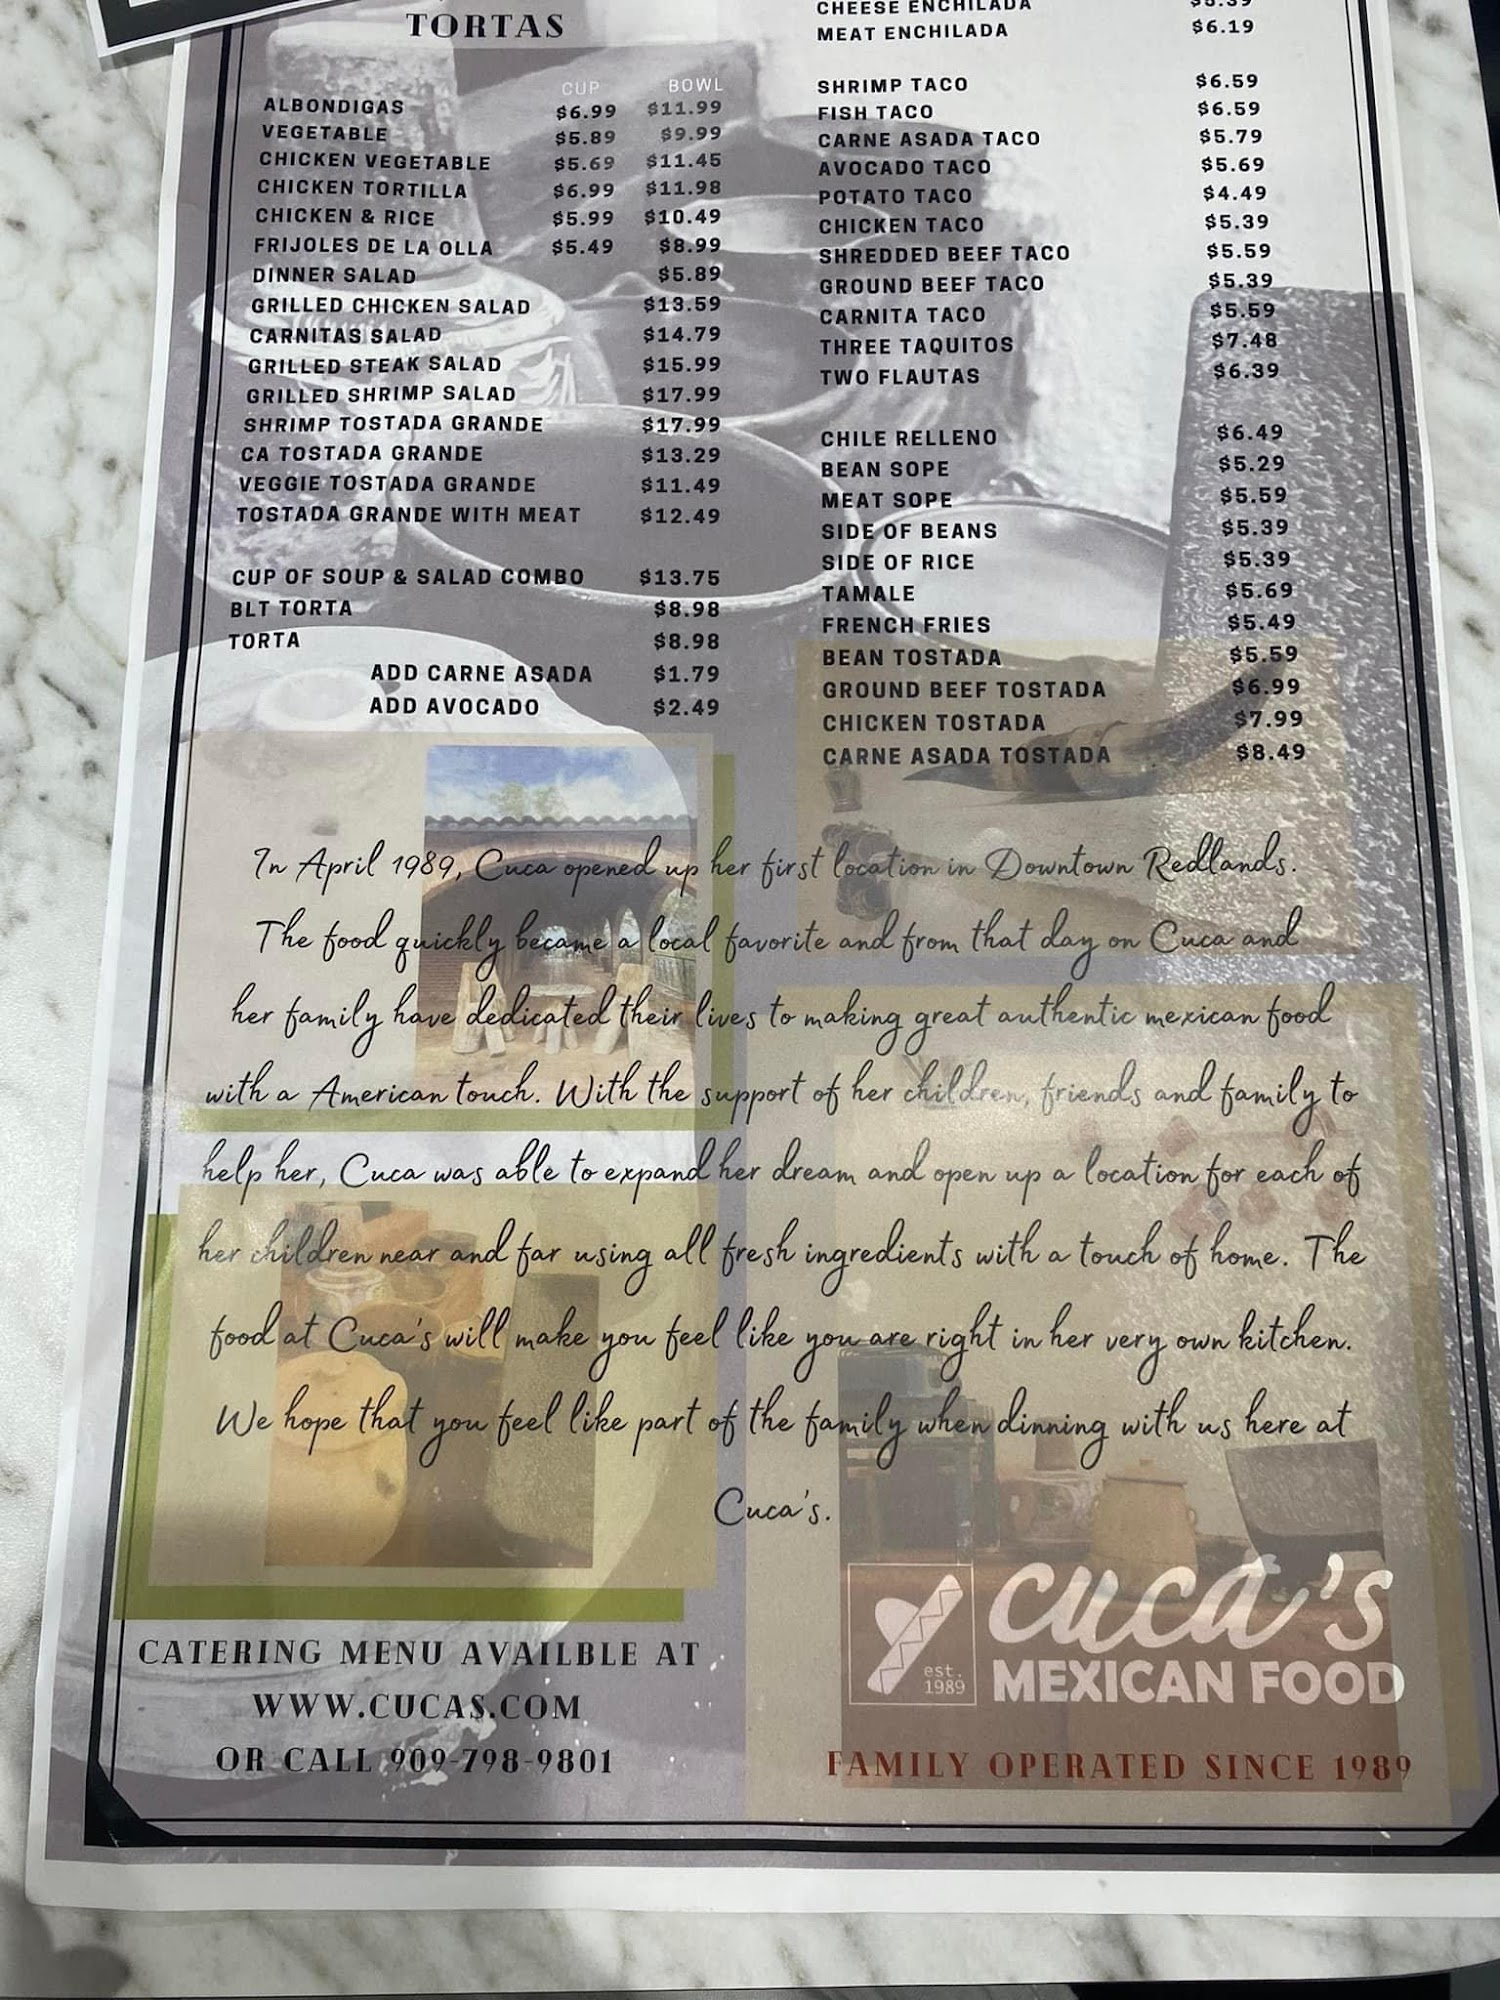 TORTAS
CUP BOWL
ALBONDIGAS $6.99 $11.99
VEGETABLE $5.89 $9.99
CHICKEN VEGETABLE $5.69 $11.45
CHICKEN TORTILLA $6.99 $11.98
CHICKEN & RICE $5.99 $10.49
FRIJOLES DE LA OLLA $5.49 $8.99
DINNER SALAD $5.89
GRILLED CHICKEN SALAD $13.59
CARNITAS SALAD $14.79
GRILLED STEAK SALAD $15.99
GRILLED SHRIMP SALAD $17.99
SHRIMP TOSTADA GRANDE $17.99
CA TOSTADA GRANDE $13.29
VEGGIE TOSTADA GRANDE $11.49
TOSTADA GRANDE WITH MEAT $12.49
CUP OF SOUP & SALAD COMBO $13.75
BLT TORTA $8.98
TORTA $8.98
ADD CARNE ASADA $1.79
ADD AVOCADO $2.49
CHEESE ENCHILADA
MEAT ENCHILADA $6.19
SHRIMP TACO $6.59
FISH TACO $6.59
CARNE ASADA TACO $5.79
AVOCADO TACO $5.69
POTATO TACO $4.49
CHICKEN TACO $5.39
SHREDDED BEEF TACO $5.59
GROUND BEEF TACO $5.39
CARNITA TACO $5.59
THREE TAQUITOS $7.48
TWO FLAUTAS $6.39
CHILE RELLENO $6.49
BEAN SOPE $5.29
MEAT SOPE $5.59
SIDE OF BEANS $5.39
SIDE OF RICE $5.39
TAMALE $5.69
FRENCH FRIES $5.49
BEAN TOSTADA $5.59
GROUND BEEF TOSTADA $6.99
CHICKEN TOSTADA $7.99
CARNE ASADA TOSTADA $8.49
In April 1989, Cuca opened up her first location in Downtown Redlands.
The food quickly became a local favorite and from that day on Cuca and
her family have dedicated their lives to making great authentic mexican food
with a American touch. With the support of her children, friends and family to
help her, Cuca was able to expand her dream and open up a location for each of
her children near and far using all fresh ingredients with a touch of home. The
food at Cuca's will make you feel like you are right in her very own kitchen.
We hope that you feel like part of the family when dinning with us here at
Cuca's.
CATERING MENU AVAILBLE AT
WWW.CUCAS.COM
OR CALL 909-798-9801
est.
1989
cuca's
MEXICAN FOOD
FAMILY OPERATED SINCE 1989